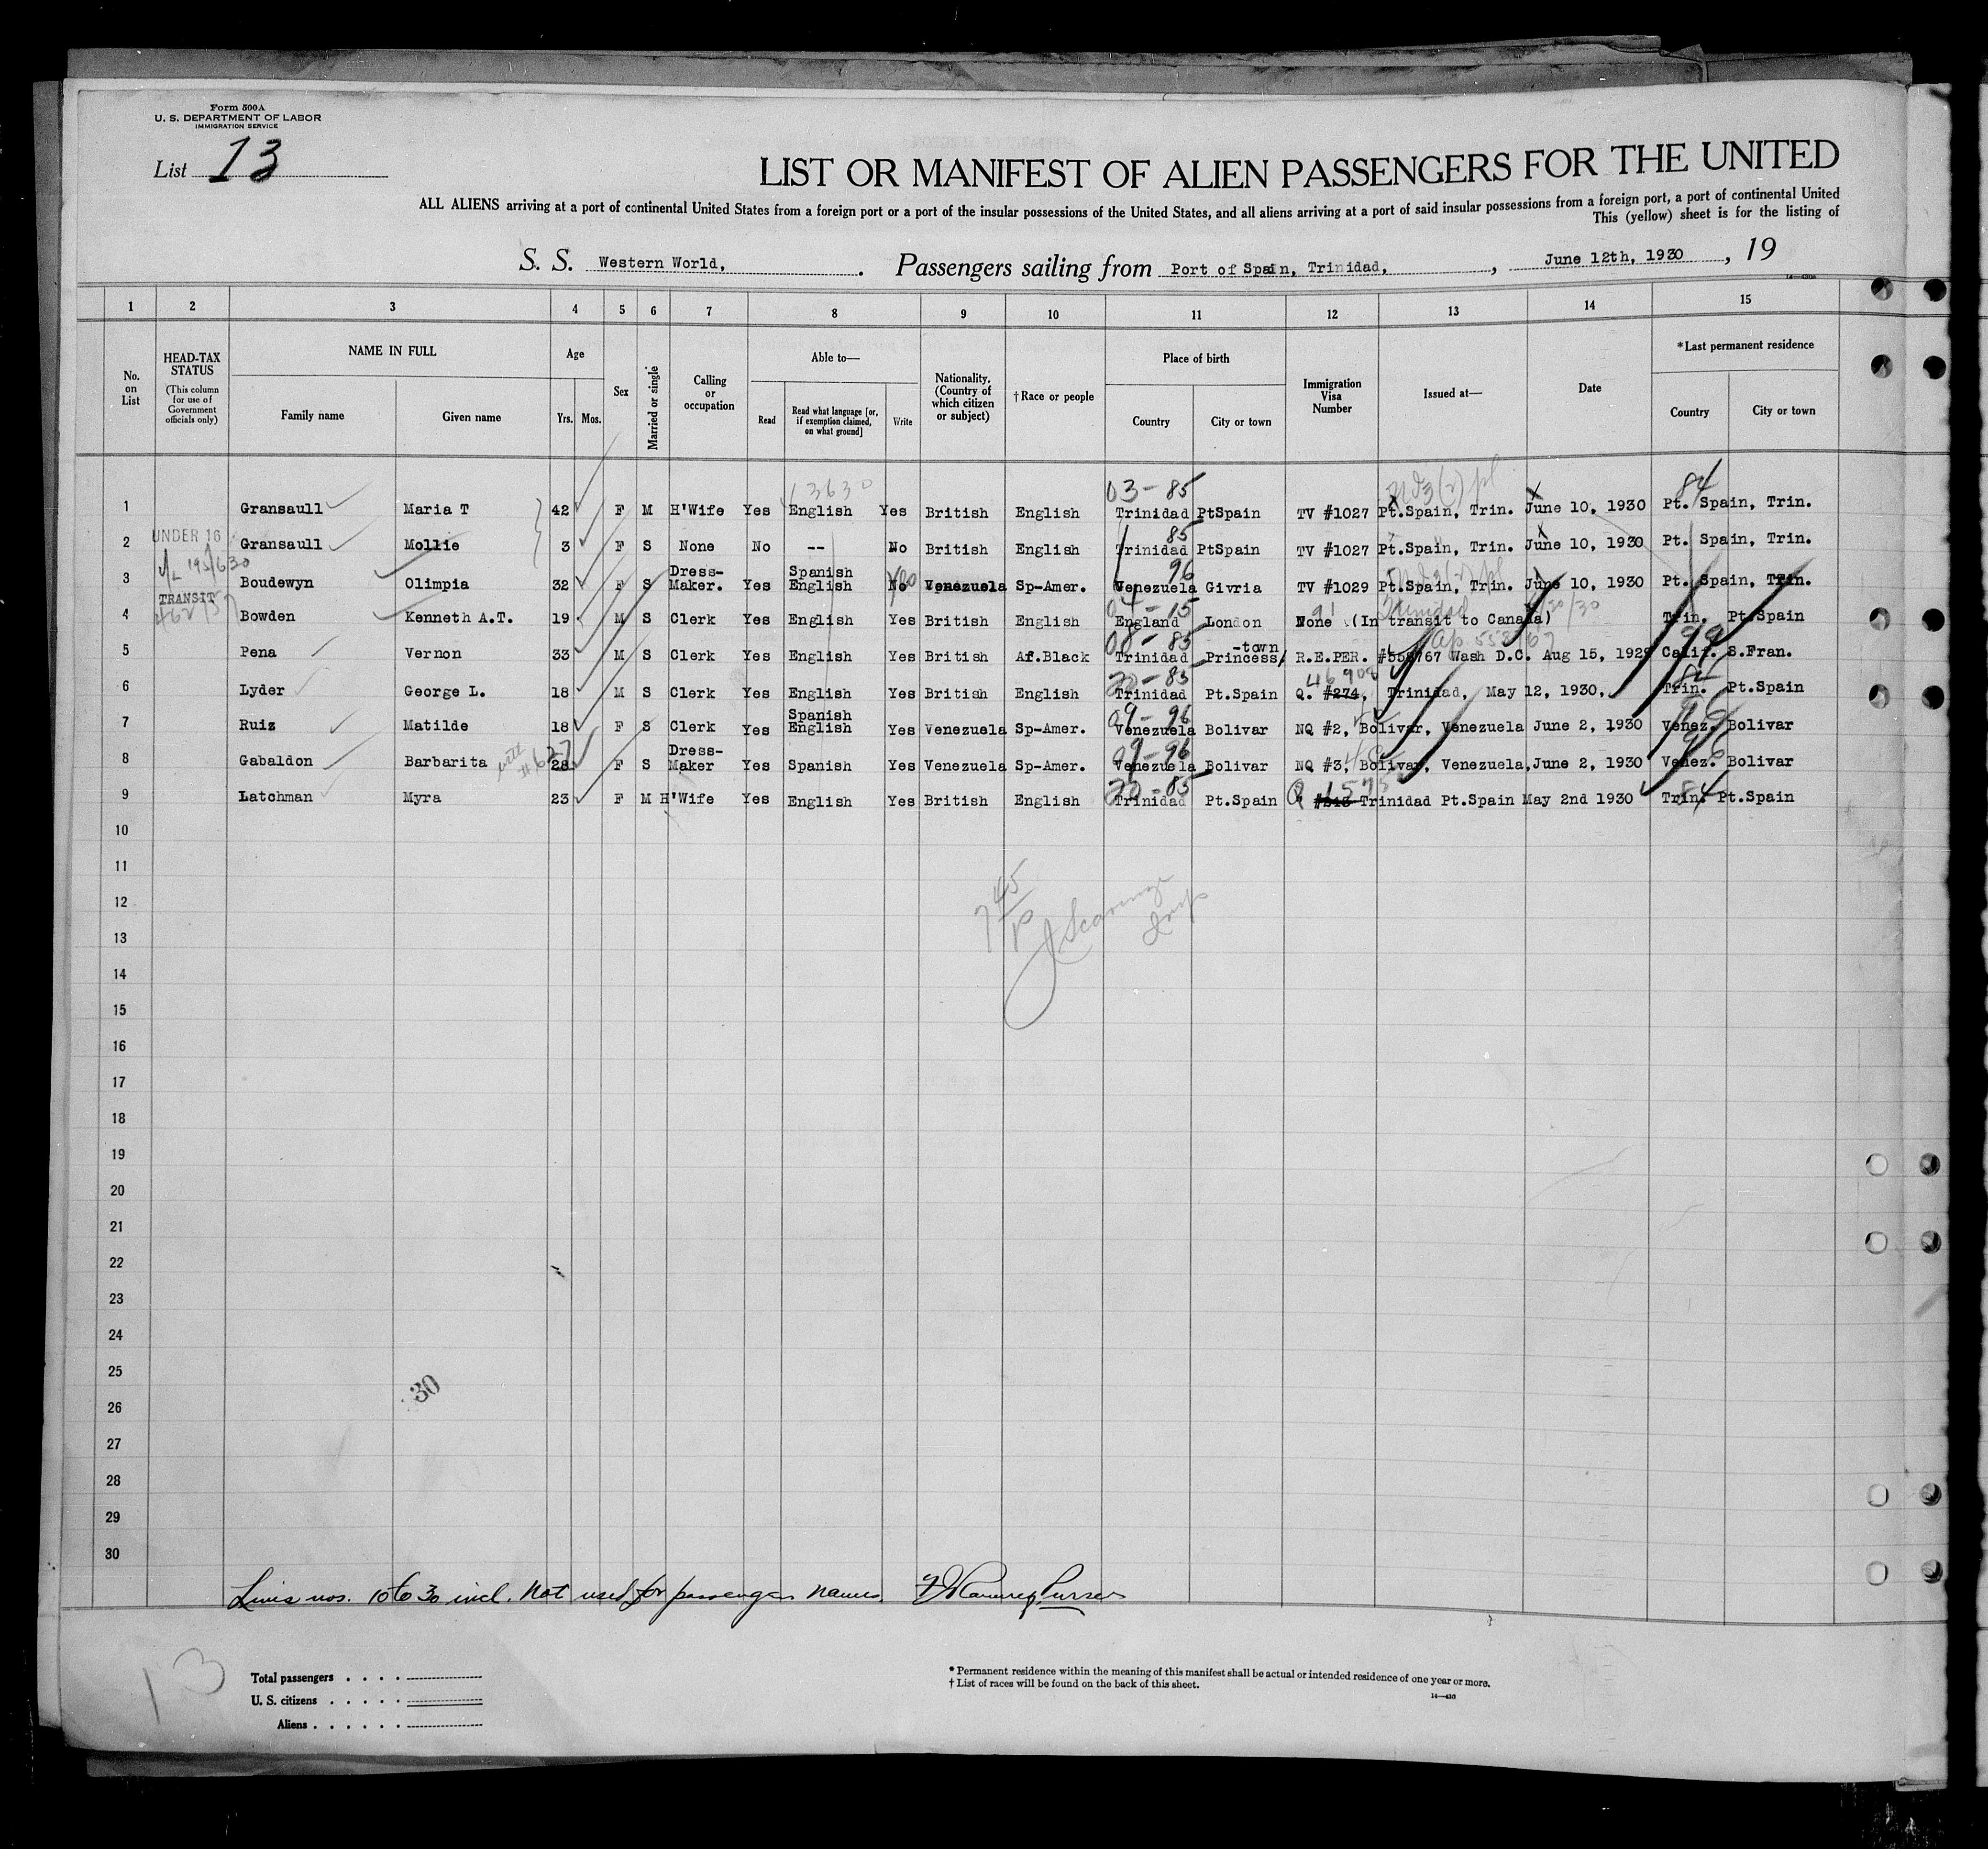 Form 500A
U. S. DEPARTMENT OF LABOR
IMMIGRATION SERVICE
List 13
LIST OR MANIFEST OF ALIEN PASSENGERS FOR THE UNITED
ALL ALIENS arriving at a port of continental United States from a foreign port or a port of the insular possessions of the United States, and all aliens arriving at a port of said insular possessions from a foreign port, a port of continental United
This (yellow) sheet is for the listing of
S. S. Western World, . Passengers sailing from Port of Spain, Trinidad, , June 12th, 1930 , 19
14—430A
1 2 3 4 5 6 7 8 9 10 11 12 13 14 15
No. on List
HEAD-TAX STATUS (This column for use of Government officials only)
NAME IN FULL
Family name Given name
Age
Yrs. Mos.
Sex
Married or single
Calling or occupation
Able to—
Read Read what language [or, if exemption claimed, on what ground] Write
Nationality. (Country of which citizen or subject)
†Race or people
Place of birth
Country City or town
Immigration Visa Number
Issued at—
Date
*Last permanent residence
Country City or town
03-85 84
1 Gransaull Maria T 42 F M H'Wife Yes English Yes British English Trinidad PtSpain TV #1027 Pt.Spain, Trin. June 10, 1930 Pt. Spain, Trin.
UNDER 16 85
2 Gransaull Mollie 3 F S None No -- No British English Trinidad PtSpain TV #1027 Pt.Spain, Trin. June 10, 1930 Pt. Spain, Trin.
Dress- Spanish 96
3 Boudewyn Olimpia 32 F S Maker. Yes English No Venezuela Sp-Amer. Venezuela Givria TV #1029 Pt.Spain, Trin. June 10, 1930 Pt. Spain, Trin.
TRANSIT
4 Bowden Kenneth A.T. 19 M S Clerk Yes English Yes British English England London None (In transit to Canada) Trin. Pt.Spain
-town
5 Pena Vernon 33 M S Clerk Yes English Yes British Af.Black Trinidad Princess/ R.E.PER. #558767 Wash D.C. Aug 15, 1929 Calif. S.Fran.
6 Lyder George L. 18 M S Clerk Yes English Yes British English Trinidad Pt.Spain Q. #274, Trinidad, May 12, 1930, Trin. Pt.Spain
Spanish 09-96
7 Ruiz Matilde 18 F S Clerk Yes English Yes Venezuela Sp-Amer. Venezuela Bolivar NQ #2, Bolivar, Venezuela June 2, 1930 Venez. Bolivar
Dress- 09-96
8 Gabaldon Barbarita 28 F S Maker Yes Spanish Yes Venezuela Sp-Amer. Venezuela Bolivar NQ #3, Bolivar, Venezuela, June 2, 1930 Venez. Bolivar
9 Latchman Myra 23 F M H'Wife Yes English Yes British English Trinidad Pt.Spain Trinidad Pt.Spain May 2nd 1930 Trin. Pt.Spain
10
11
12
13
14
15
16
17
18
19
20
21
22
23
24
25
30
26
27
28
29
30
Lines nos. 10 to 30 incl. Not used for passenger names Purser
13
Total passengers
U. S. citizens
Aliens
* Permanent residence within the meaning of this manifest shall be actual or intended residence of one year or more.
† List of races will be found on the back of this sheet.
14—430